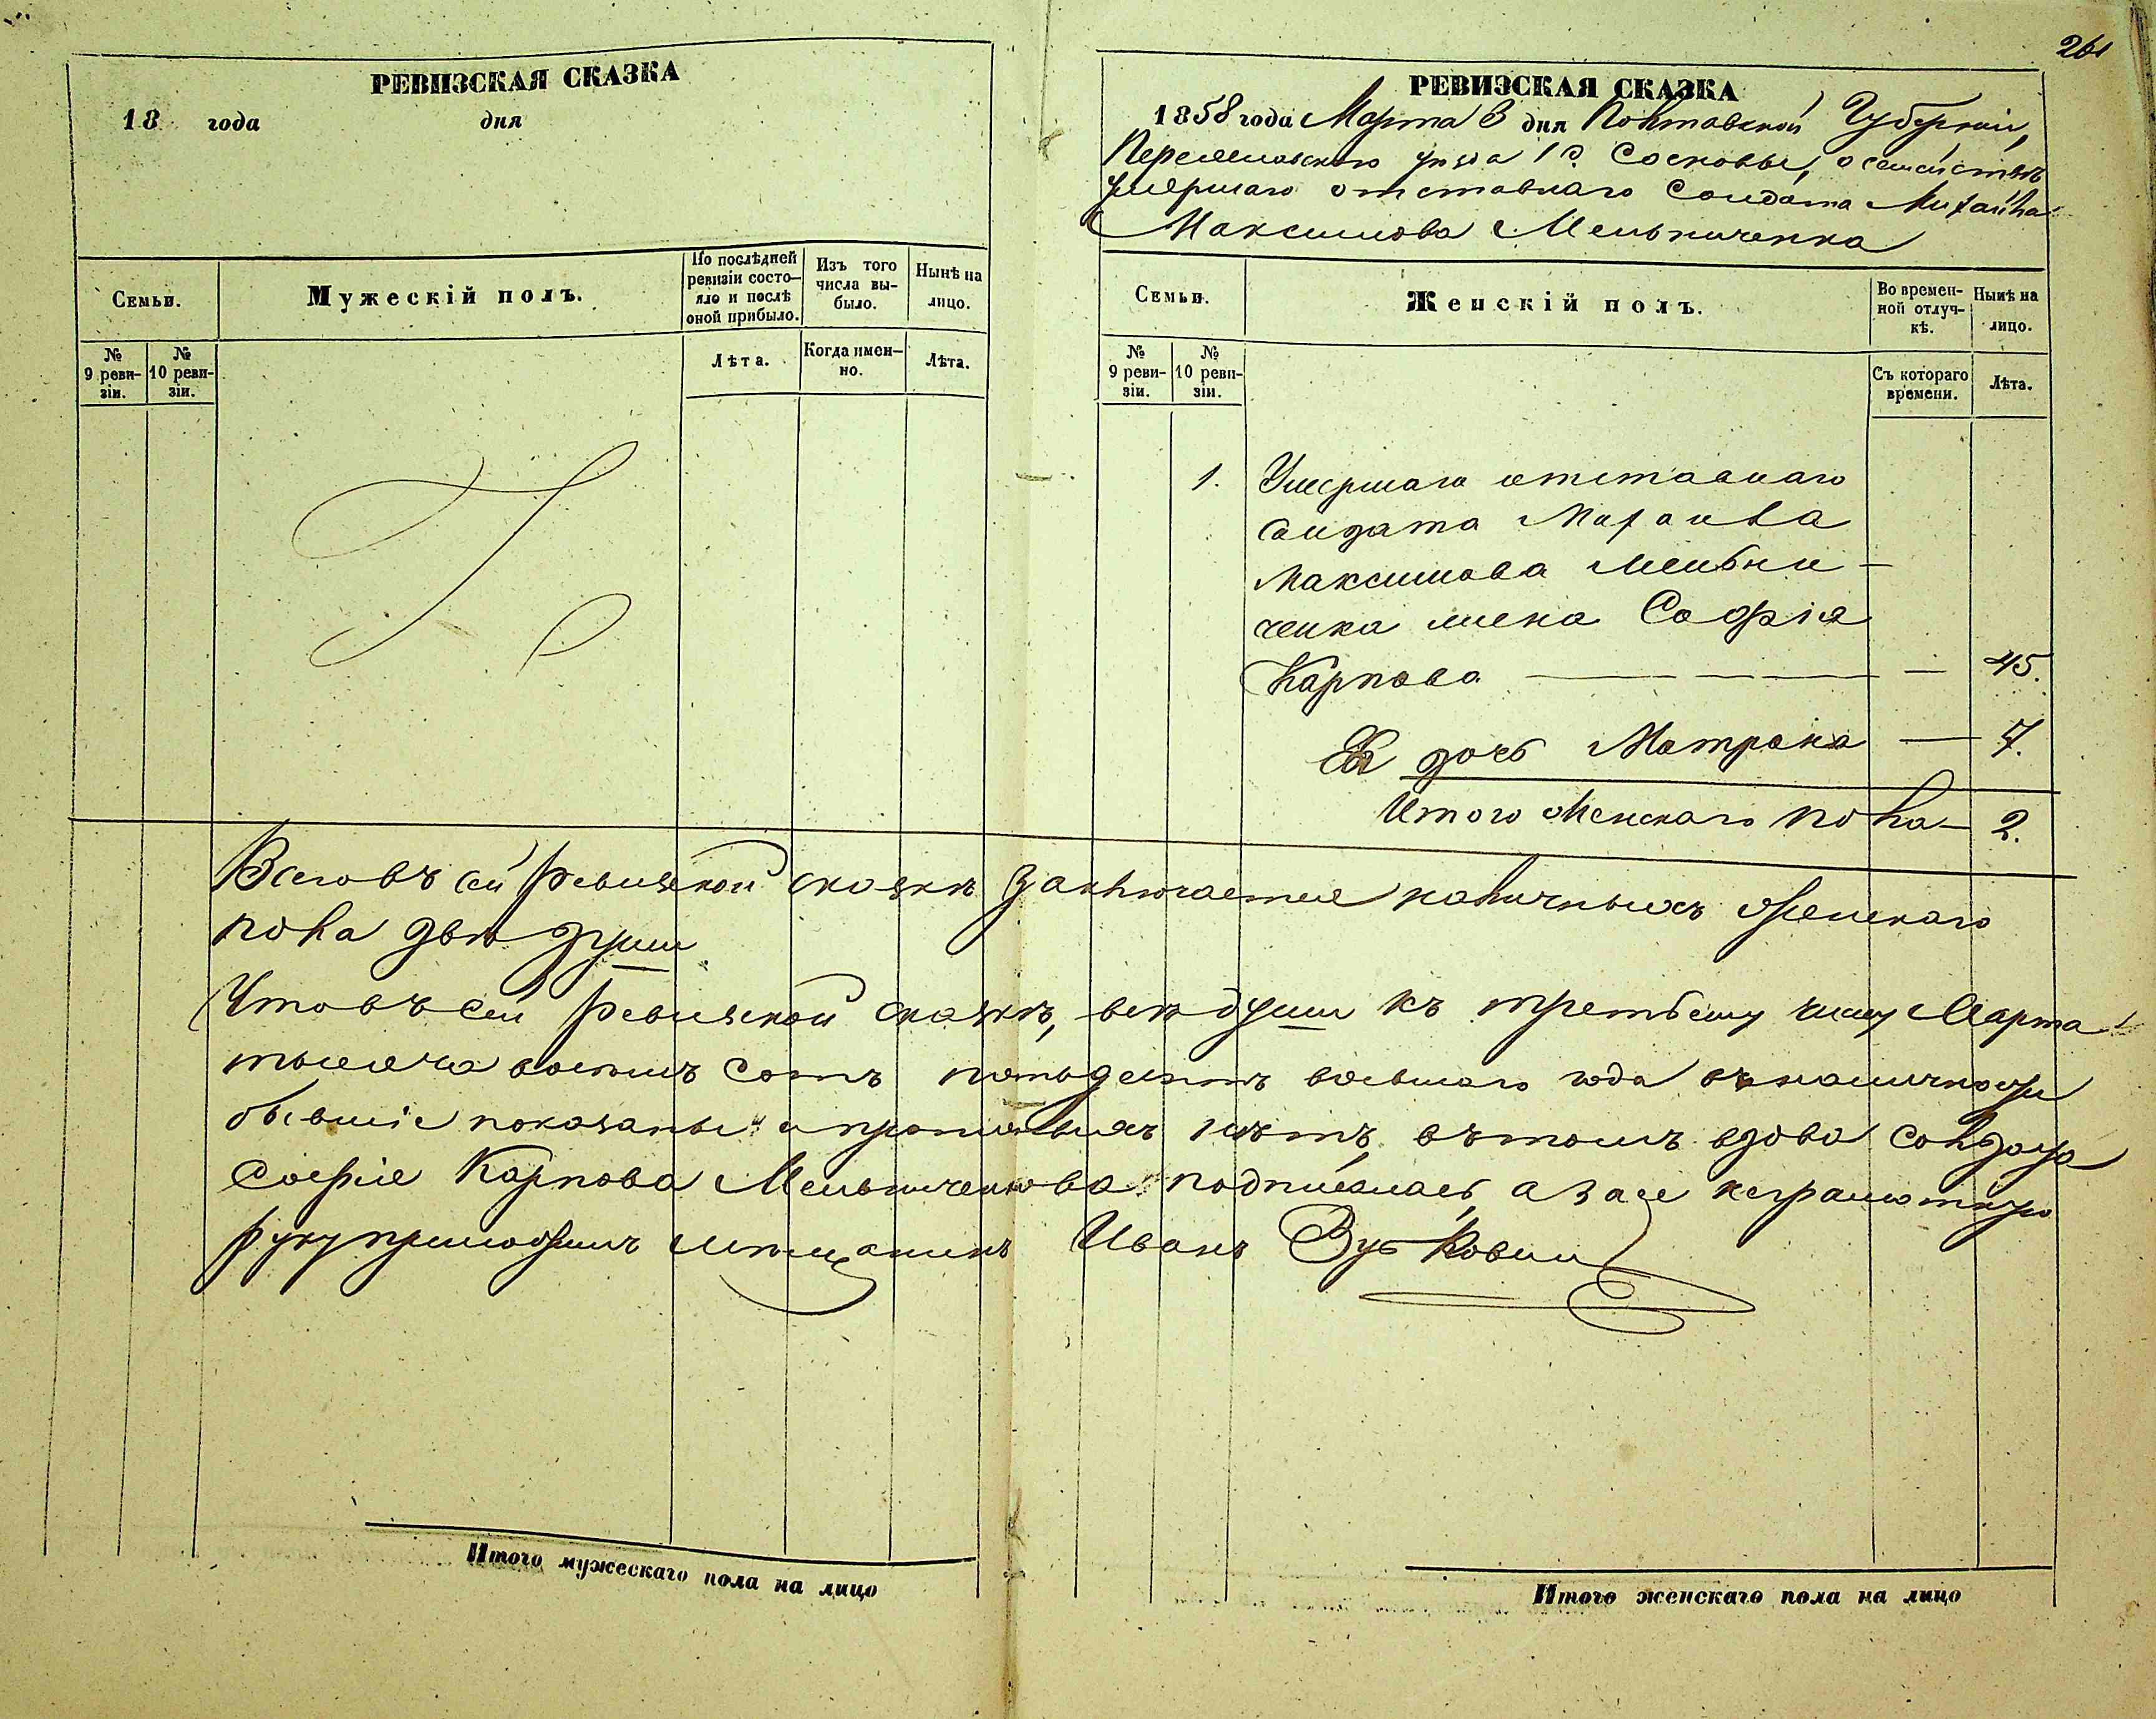 261
РЕВИЗСКАЯ СКАЗКА
18 года дня
Семьи.
Мужескій полъ.
По послѣдней ревизіи состо-
яло и послѣ оной прибыло.
Изъ того числа вы-
было.
Нынѣ на лицо.
№ 9 реви-
зіи.
№ 10 реви-
зіи.
Лѣта.
Когда имен-
но.
Лѣта.
РЕВИЗСКАЯ СКАЗКА
1858 года Марта 3 дня Полтавской Губерніи,
Переяславского уезда с. Сосновы, о семействѣ
умершаго отставнаго Солдата Михаила
Максимова Мельниченка
Семьи.
Женскій полъ.
Во времен-
ной отлуч-
кѣ.
Нынѣ на лицо.
№ 9 реви-
зіи.
№ 10 реви-
зіи.
Съ котораго времени.
Лѣта.
1. Умершаго отставнаго
солдата Михаила
Максимова Мельни-
ченка жена Софія
Карпова — 45.
Ея дочь Матрона — 7.
Итого женскаго пола — 2.
Всего въ сей ревизской сказкѣ заключается наличныхъ женскаго
пола двѣ души
Что въ сей ревизской сказкѣ, всѣ души къ третьему числу Марта
тысяча восемь сотъ пятьдесятъ восьмаго года въ наличности
бывшіе показаны и прописныхъ нѣтъ, въ томъ вдова солдата
Софія Карпова Мельниченкова подписалась, а за ее неграмотную
руку приложилъ мѣщанинъ Иванъ
Итого мужескаго пола на лицо
Итого женскаго пола на лицо